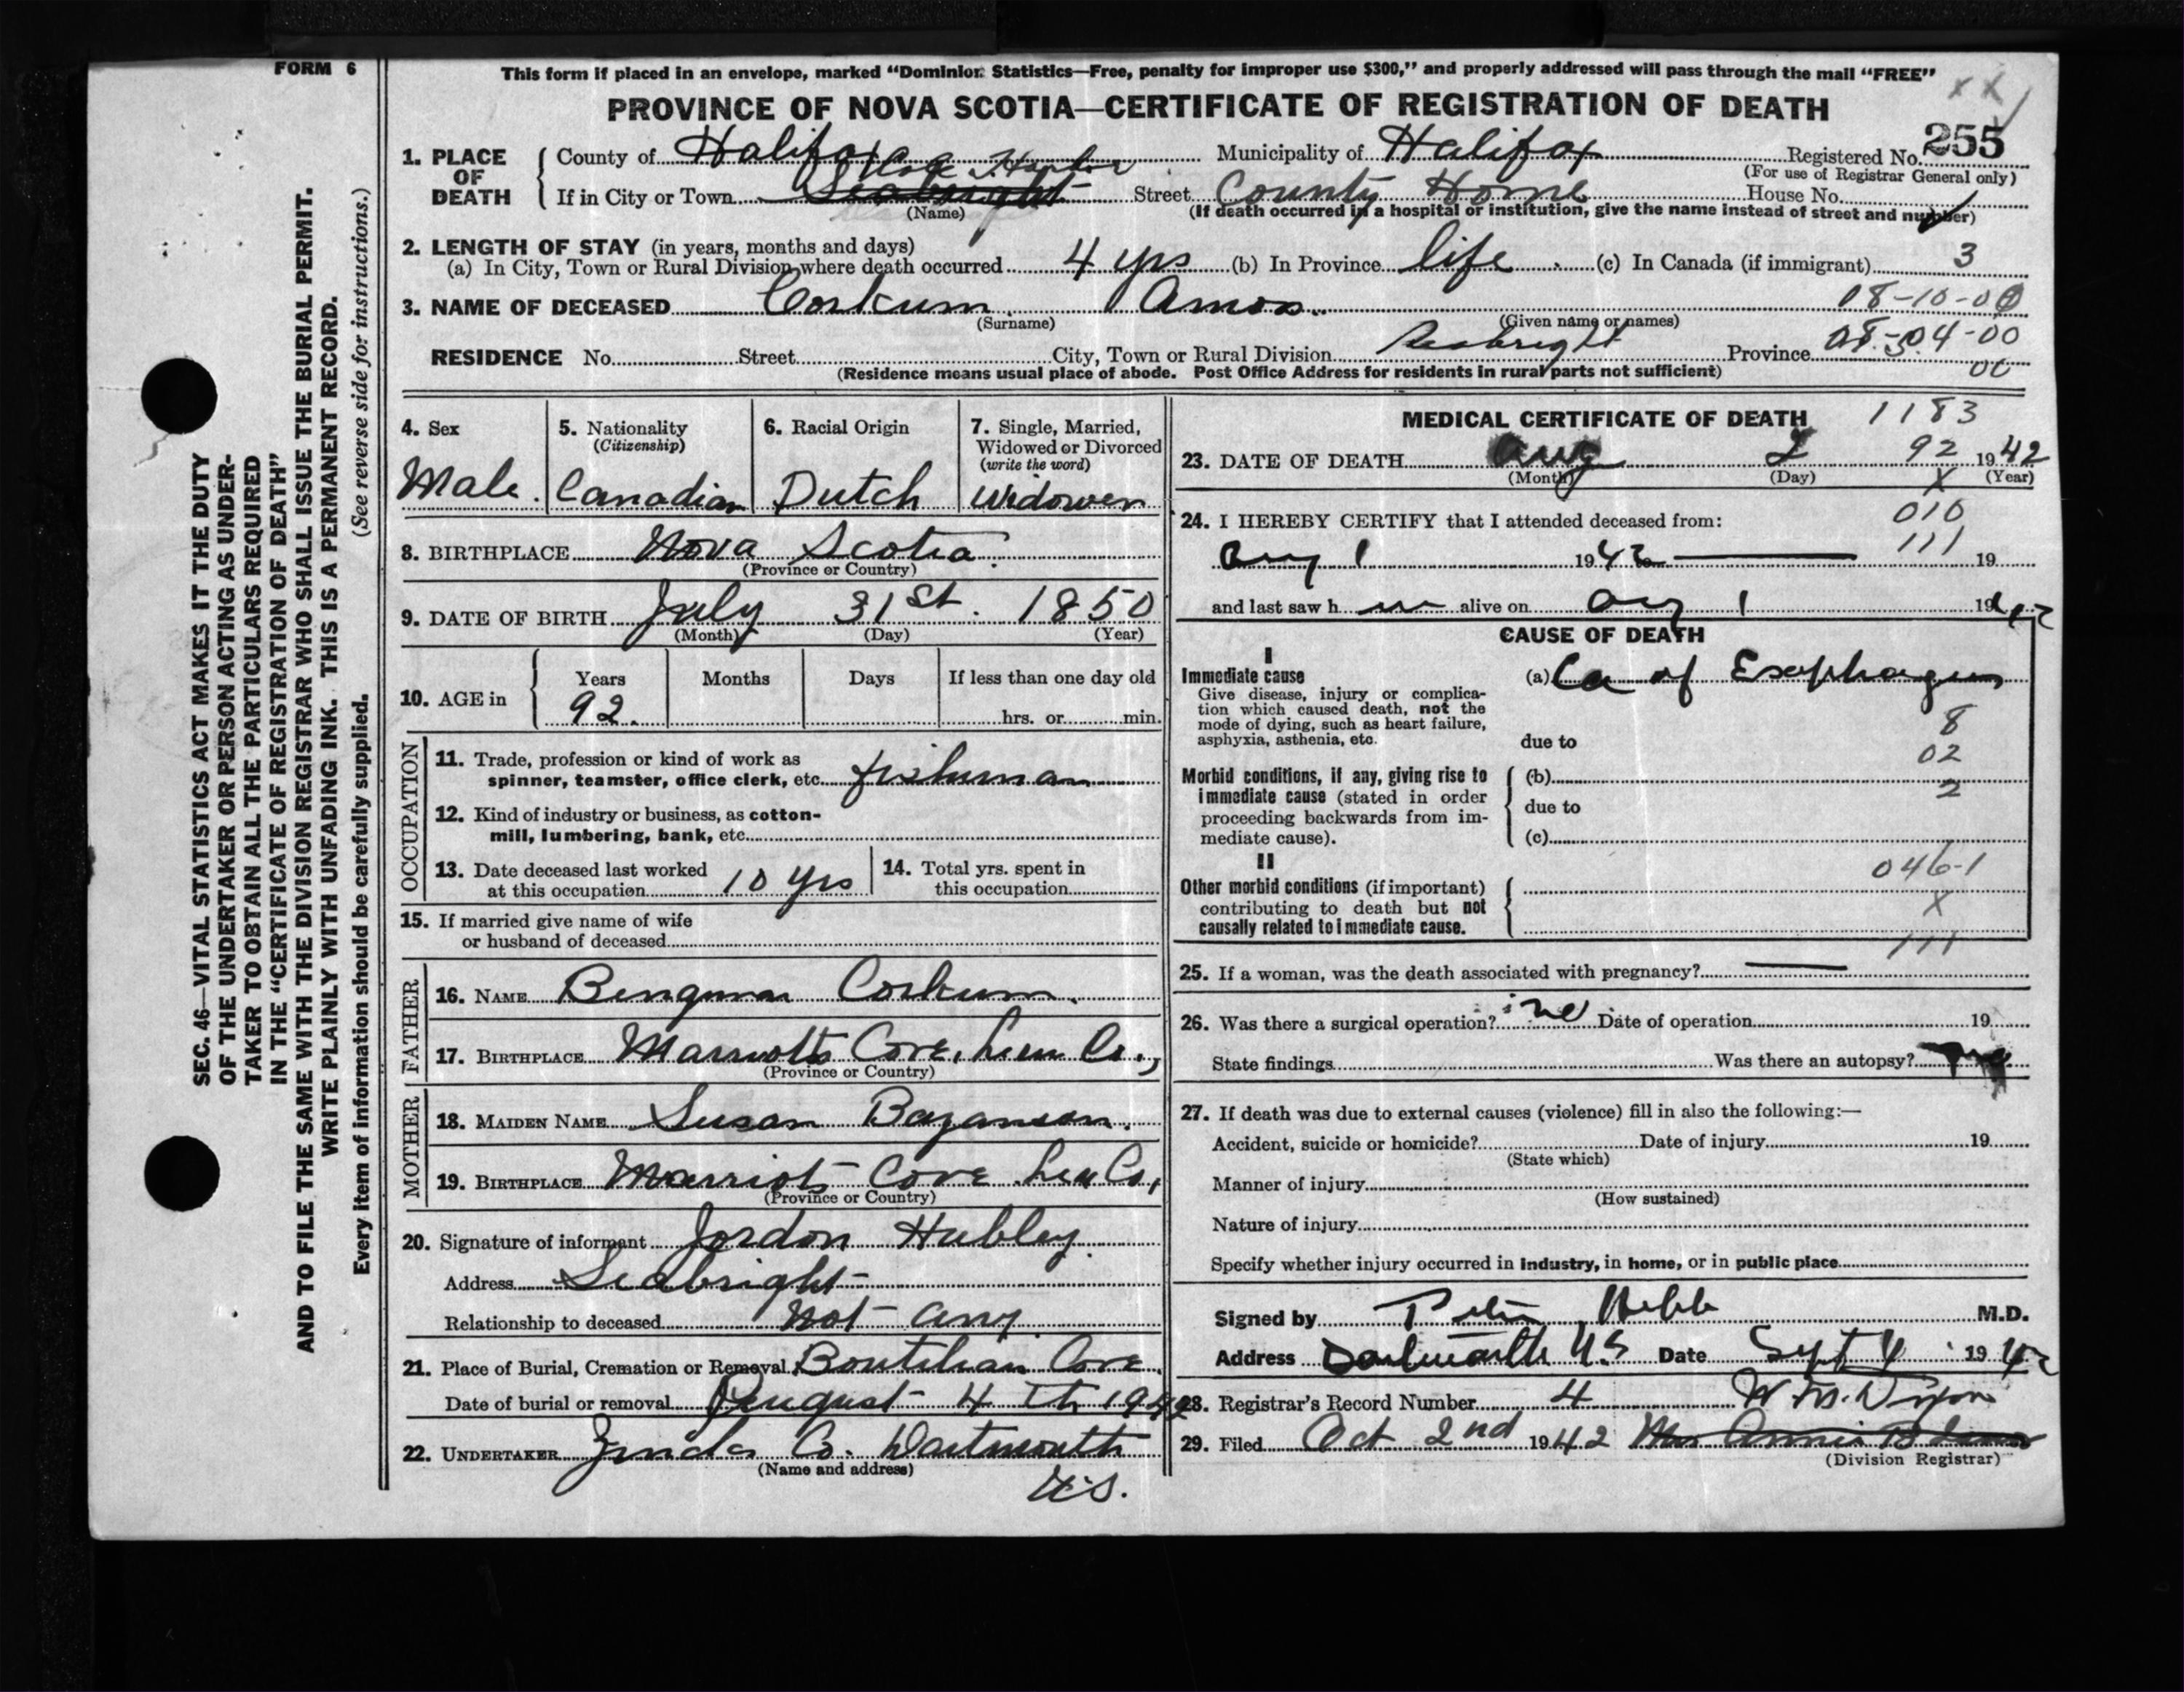 FORM 6
This form if placed in an envelope, marked "Dominion Statistics—Free, penalty for improper use $300," and properly addressed will pass through the mail "FREE"
PROVINCE OF NOVA SCOTIA—CERTIFICATE OF REGISTRATION OF DEATH
1. PLACE OF DEATH County of Halifax Municipality of Halifax Registered No. 255
(For use of Registrar General only)
If in City or Town Cole Harbor Seabright Street County Home House No.
(Name) (If death occurred in a hospital or institution, give the name instead of street and number)
2. LENGTH OF STAY (in years, months and days)
(a) In City, Town or Rural Division where death occurred 4 yrs (b) In Province life (c) In Canada (if immigrant) 3
3. NAME OF DECEASED Corkum Amos 08-10-00
(Surname) (Given name or names)
RESIDENCE No. Street City, Town or Rural Division Seabright Province 08-04-00
00
(Residence means usual place of abode. Post Office Address for residents in rural parts not sufficient)
4. Sex
Male.
5. Nationality
(Citizenship)
Canadian
6. Racial Origin
Dutch
7. Single, Married,
Widowed or Divorced
(write the word)
Widower
8. BIRTHPLACE Nova Scotia.
(Province or Country)
9. DATE OF BIRTH July 31st. 1850
(Month) (Day) (Year)
10. AGE in Years Months Days If less than one day old
92. hrs. or min.
OCCUPATION
11. Trade, profession or kind of work as
spinner, teamster, office clerk, etc. fisherman
12. Kind of industry or business, as cotton-
mill, lumbering, bank, etc.
13. Date deceased last worked
at this occupation 10 yrs
14. Total yrs. spent in
this occupation
15. If married give name of wife
or husband of deceased
FATHER
16. NAME Corkum.
17. BIRTHPLACE Marriotts Cove, Lun Co.,
(Province or Country)
MOTHER
18. MAIDEN NAME Susan
19. BIRTHPLACE Marriots Cove Lun Co,
(Province or Country)
20. Signature of informant Jordon Hubley
Address Seabright
Relationship to deceased Not any
21. Place of Burial, Cremation or Removal Boutilian Cove
Date of burial or removal August 4th 1942
22. UNDERTAKER Zinck Co. Dartmouth
(Name and address)
N.S.
MEDICAL CERTIFICATE OF DEATH 1183
23. DATE OF DEATH Aug 2 92 1942
(Month) (Day) X (Year)
24. I HEREBY CERTIFY that I attended deceased from: 010
Aug 1 1942 111 19
and last saw h im alive on Aug 1 1942
CAUSE OF DEATH
I
Immediate cause
Give disease, injury or complica-
tion which caused death, not the
mode of dying, such as heart failure,
asphyxia, asthenia, etc.
(a) Ca of Esophagus
8
due to
02
Morbid conditions, if any, giving rise to
immediate cause (stated in order
proceeding backwards from im-
mediate cause).
(b)
2
due to
(c)
II
046-1
Other morbid conditions (if important)
contributing to death but not
causally related to immediate cause.
X
111
25. If a woman, was the death associated with pregnancy? —
26. Was there a surgical operation? no Date of operation 19
State findings Was there an autopsy? no
27. If death was due to external causes (violence) fill in also the following:—
Accident, suicide or homicide? Date of injury 19
(State which)
Manner of injury
(How sustained)
Nature of injury
Specify whether injury occurred in industry, in home, or in public place
Signed by Peter Hebb M.D.
Address Dartmouth N.S Date Sept 4 1942
28. Registrar's Record Number 4 W. M. Dixon
29. Filed Oct 2nd 1942 Mrs Annie
(Division Registrar)
SEC. 46—VITAL STATISTICS ACT MAKES IT THE DUTY
OF THE UNDERTAKER OR PERSON ACTING AS UNDER-
TAKER TO OBTAIN ALL THE PARTICULARS REQUIRED
IN THE "CERTIFICATE OF REGISTRATION OF DEATH"
AND TO FILE THE SAME WITH THE DIVISION REGISTRAR WHO SHALL ISSUE THE BURIAL PERMIT.
WRITE PLAINLY WITH UNFADING INK. THIS IS A PERMANENT RECORD.
Every item of information should be carefully supplied. (See reverse side for instructions.)